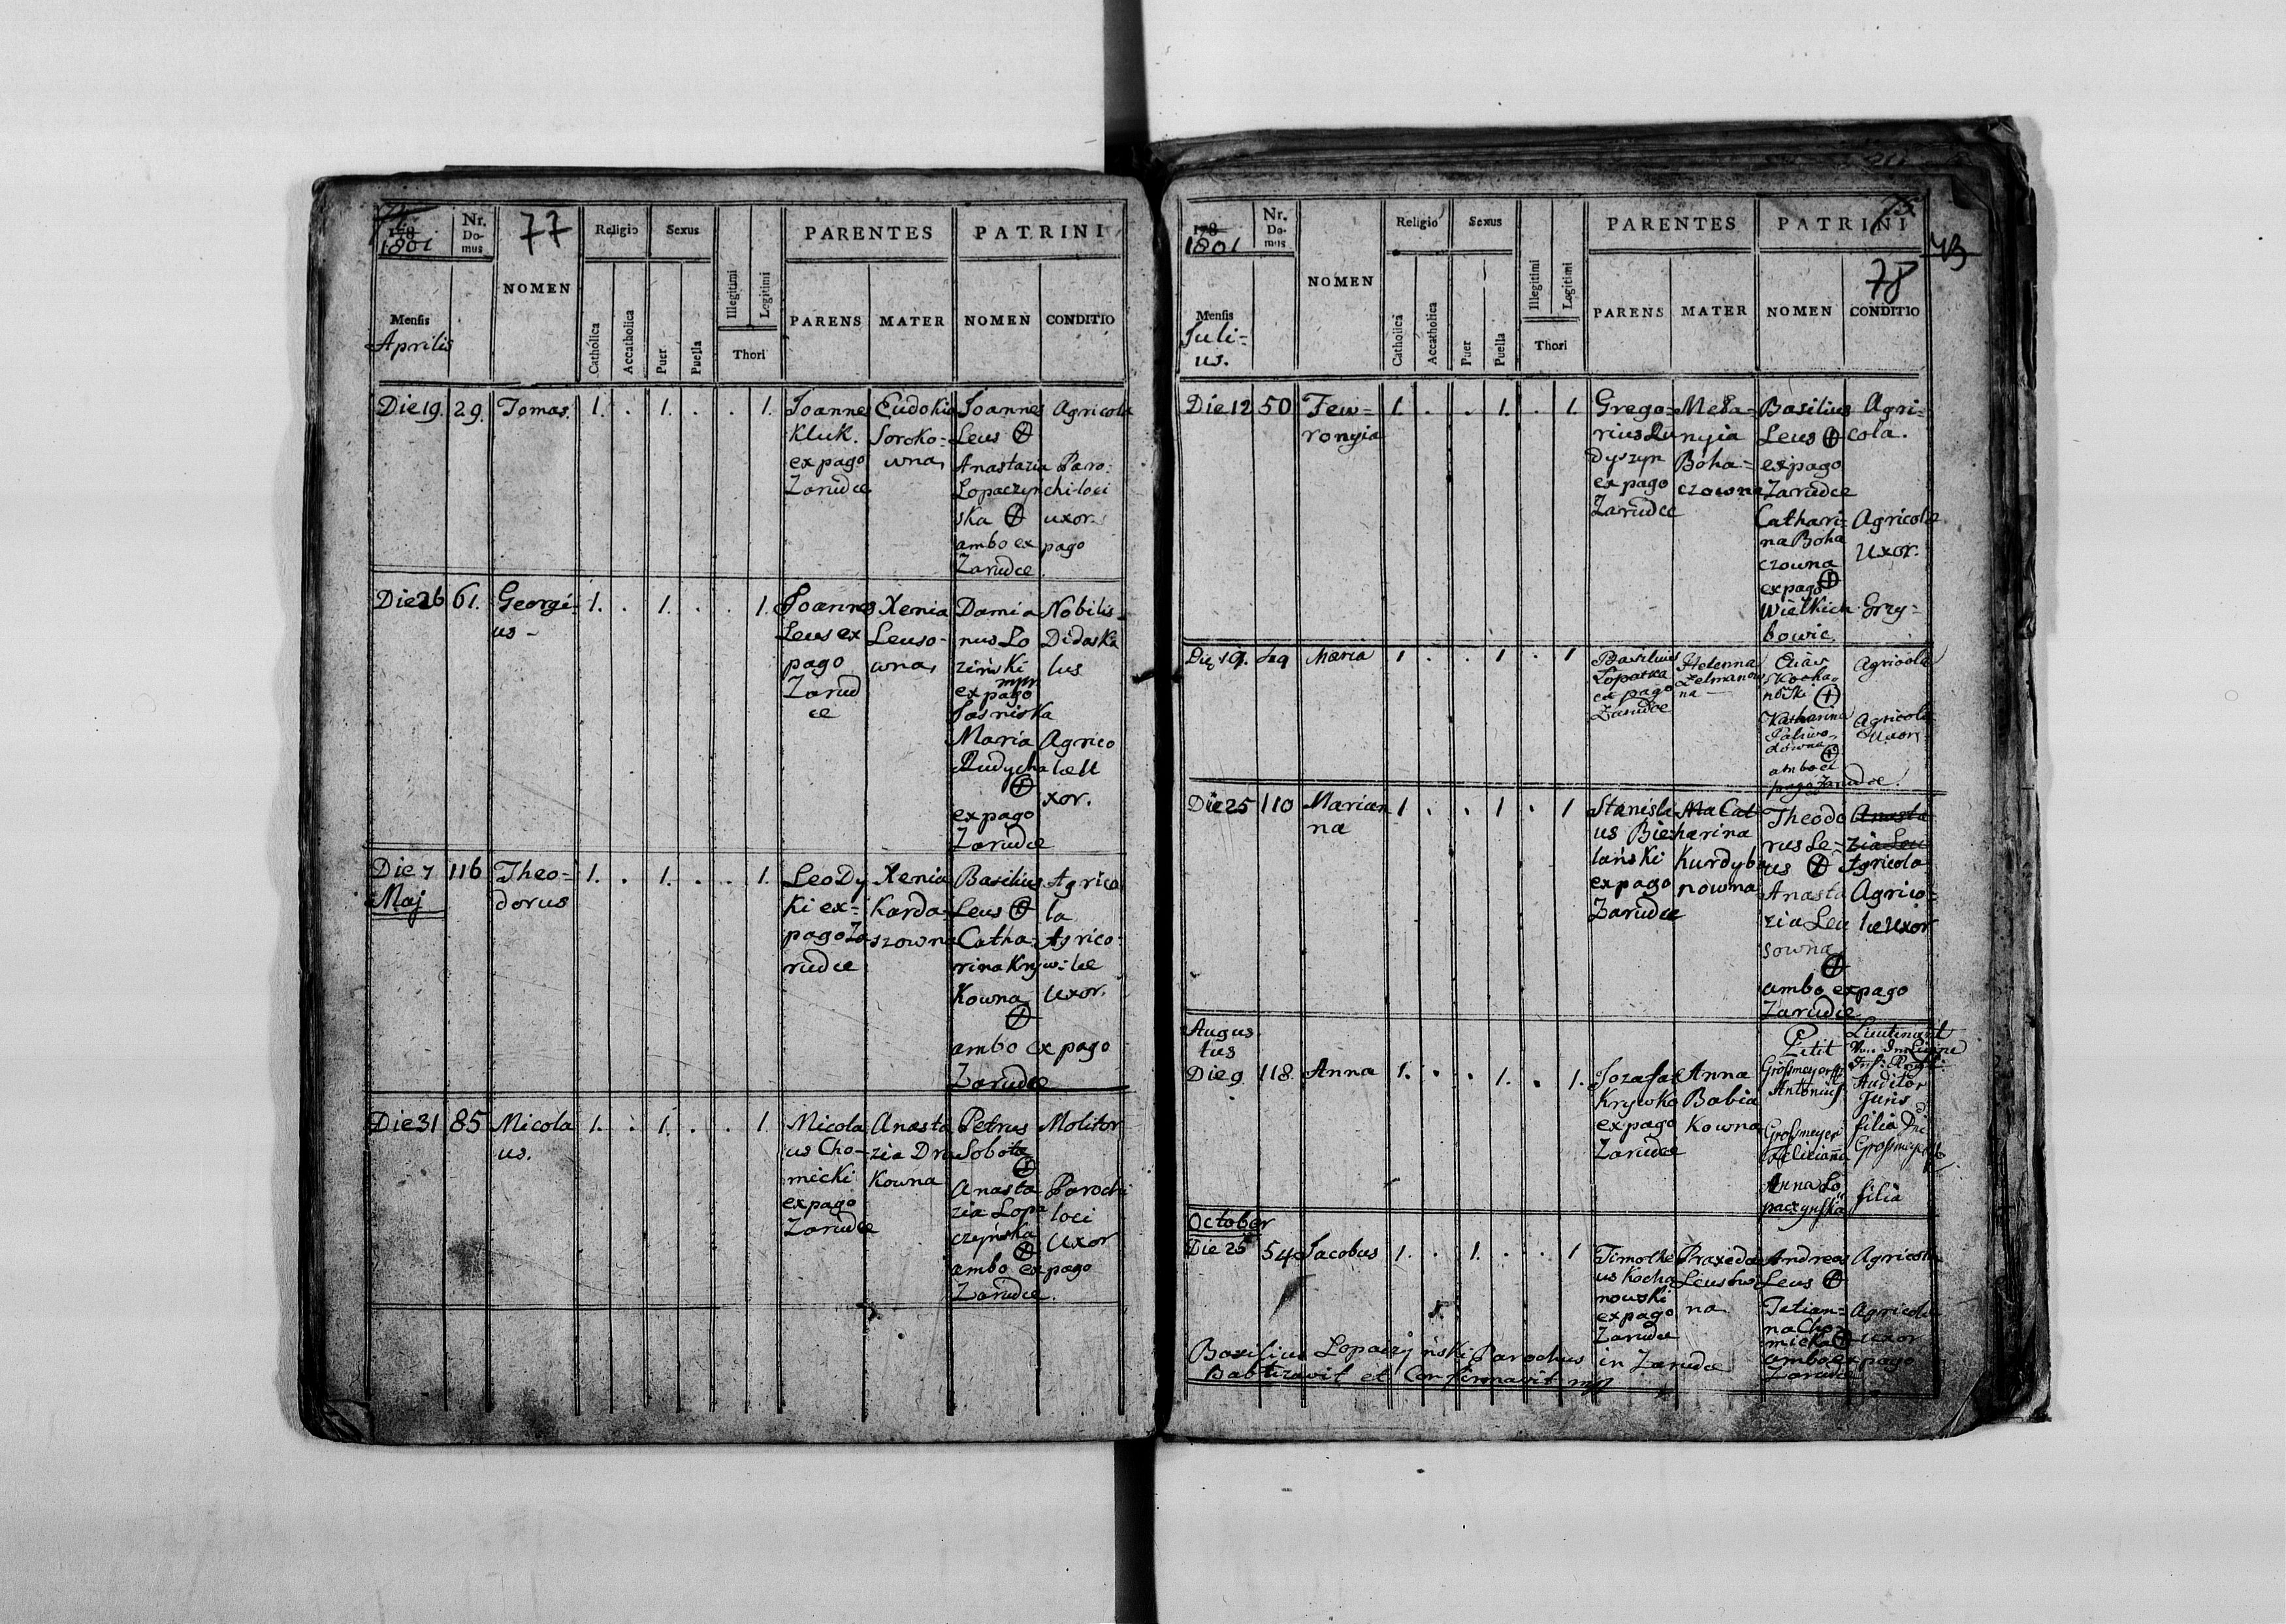 1801
Nr. Domus
77
NOMEN
Religio
Sexus
Catholica
Accatholica
Puer
Puella
Illegitimi
Legitimi
Thori
PARENTES
PATRINI
PARENS
MATER
NOMEN
CONDITIO
Mensis
Aprilis
Die 19. 29. Tomas. 1. . 1. . . 1.
Joannes
Kluk.
ex pago
Zarudce
Eudokia
Soroko=
wna,
Joannes
Leus
Anastazia
Lopaczyń
ska
ambo ex pago
Zarudce
Agricola
Paro:
chi loci
uxor.
Die 26 61. Georgi-
us - 1. . 1. . . 1.
Joannes
Leus ex
pago
Zarud
ce
Xenia
Leuso-
wna,
Damia
nus Lo
ziński
mpp
ex pago
Jasniska
Maria
Dudycha
ex pago
Zarudce
Nobilis
Didaska
lus
Agrico
læ U
xor.
Die 7 116 Theo=
Maj dorus 1. . 1. . . 1.
Leo Dy
ki ex=
pago Za
rudce
Xenia
Karda=
szowna
Basilius
Leus
Catha=
rina Kryw
kowna
ambo ex pago
Zarudce
Agrico
la
Agrico=
læ
Uxor.
Die 31 85 Nicola
us. 1. . 1. . . 1
Nicola
us Cho-
micki
ex pago
Zarudce
Anasta
zia Dru
kowna
Petrus
Sobota
Anasta
zia Lopa
czyńska
ambo ex pago
Zarudce.
Molitor
Parochi
loci
Uxor
1801
Nr. Domus
NOMEN
Religio
Sexus
Catholica
Accatholica
Puer
Puella
Illegitimi
Legitimi
Thori
PARENTES
PATRINI
PARENS
MATER
NOMEN
CONDITIO
75
43
78
Mensis
Juli=
us.
Die 12 50 Few=
ronyia 1. . . 1. . 1.
Grego=
rius Du
dyszyn
ex pago
Zarudce
Mela=
nyia
Boha=
czowna
Basilius
Leus
ex pago
Zarudce
Cathari=
na Boha
czowna
ex pago
Wielkich Grzy=
bowic.
Agri=
cola.
Agricola
Uxor.
Die 19. Maria 1 . . 1 . 1
Basilius
Lopatka
ex pago
Zarudce
Helenna
Zelmanow
na
Elias
Kocha
noski
Katharina
ambo ex
pago Zarudce.
Agricola
Agricola
Uxor.
Die 25 110 Marian
na 1 . . 1 . 1
Stanisla
us Bie
lański
ex pago
Zarudce
Ma Cat
harina
Kurdyba
nowna
Theodo
rus Le=
us
Anasta
zia Leu
sowna
ambo ex pago
Zarudce
Anasta
zia Leu
Agricola
Agrico=
læ Uxor
Augus
tus
Die 9 118. Anna 1. . . 1. . 1.
Jozafat
Krywko
ex pago
Zarudce
Anna
Babia
kowna
Petit
Großmeyer
Antonius
Großmeyer
Feliciana
Anna Lo
paczyńska
Lieutenant
Auditor
Juris
filia
Großmeyer
filia
October
Die 25 54 Jacobus 1. . 1. . . 1
Timothe
us Kocha
nowski
ex pago
Zarudce
Praxeda
Leusow
na
Andreas
Leus
Tatian=
na Cho
micka
ambo ex pago
Zarudce
Agricola
Agricola
uxor
Basilius Lopaczyński Parochus in Zarudce
Babtizavit et Confirmavit mpp